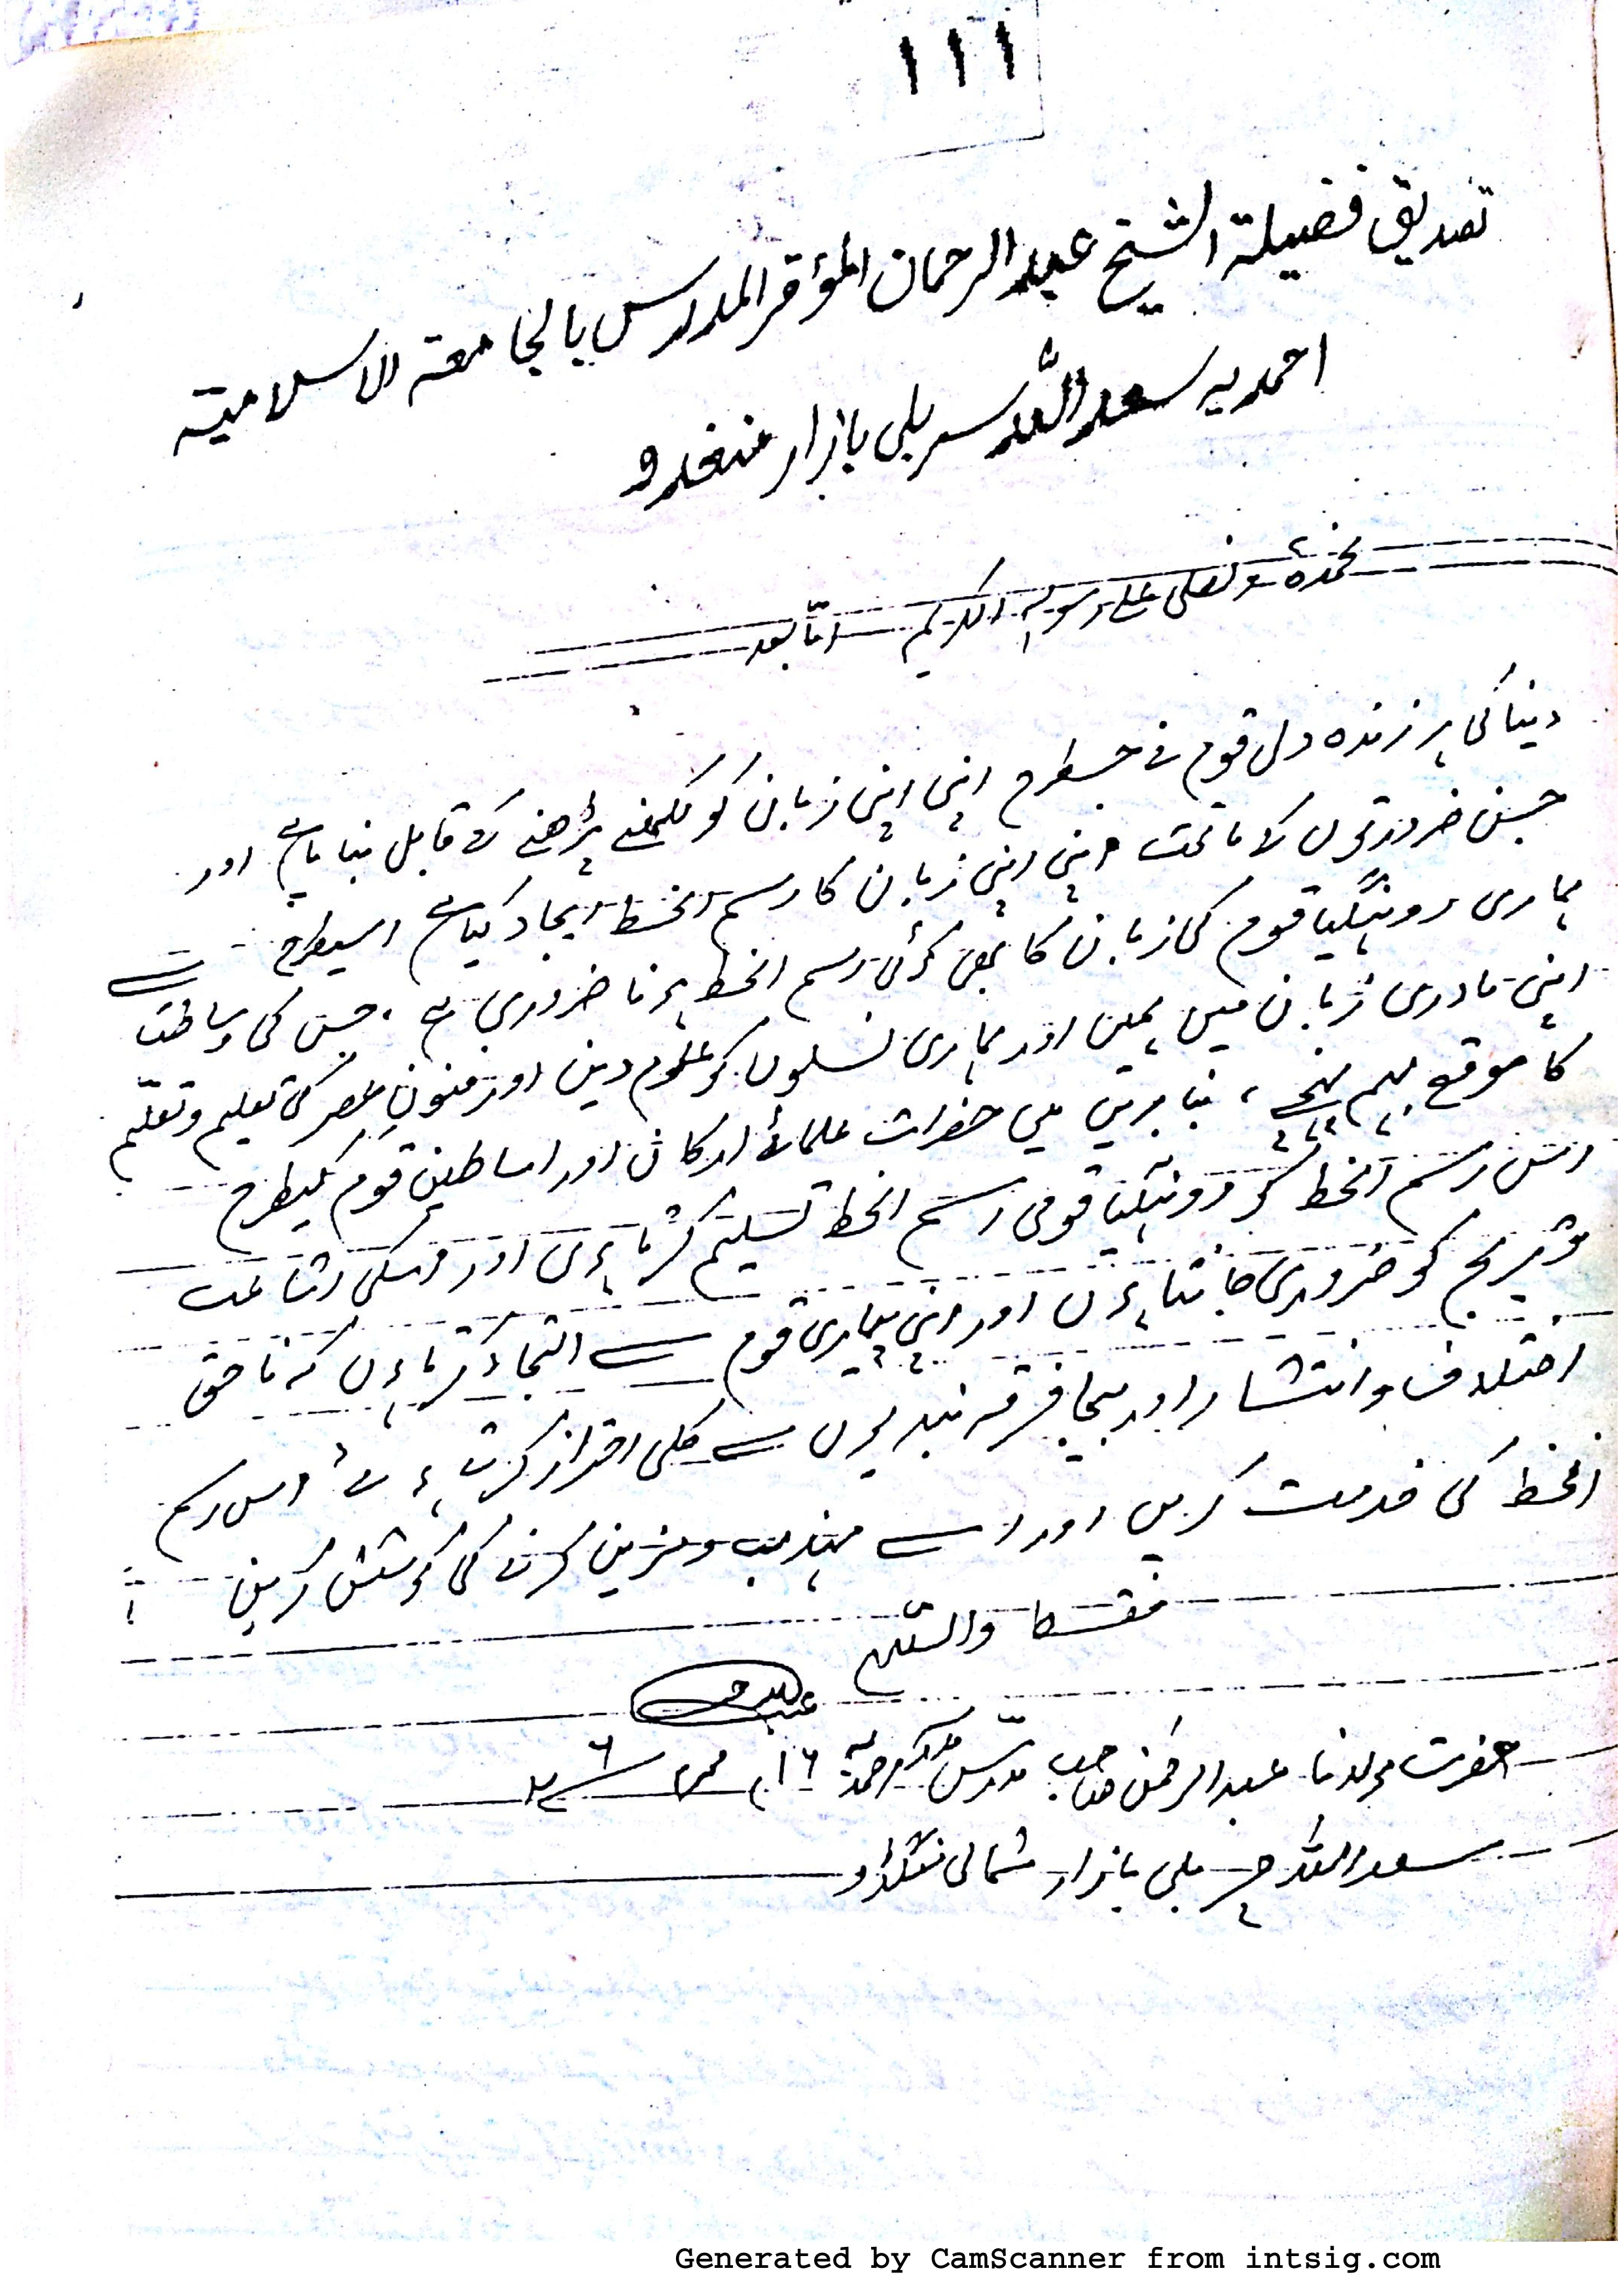 ۱۱۱
تصدیق فضیلة الشیخ عبد الرحمان المؤقر المدرس بالجامعة الاسلامیة
احمدیہ سعد اللہ سربلی بازار منغدو
نحمدہ و نصلی علی رسولہ الکریم امّا بعد
دنیا کی ہر زندہ دل قوم نے جسطرح اپنی اپنی زبان کو لکھنے پڑھنے کے قابل بنایا ہے اور
جن ضرورتوں کے ماتحت اپنی اپنی زبان کا رسم الخط ایجاد کیا ہے اسیطرح
ہماری روہنگیا قوم کی زبان کا بھی کوئی رسم الخط ہونا ضروری ہے ، جس کی وساطت سے
اپنی مادری زبان میں ہمیں اور ہماری نسلوں کو علوم دین اور فنونِ عصر کی تعلیم وتعلّم
کا موقع بہم پہنچے ، بنا بریں میں حضرات علمائے ارکان اور اساطین قوم کیطرح
اس رسم الخط کو روہنگیا قومی رسم الخط تسلیم کرتا ہوں اور اسکی اشاعت
وترویج کو ضروری جانتا ہوں اور اپنی پیاری قوم سے التجاء کرتا ہوں کہ ناحق
اختلاف و انتشار اور بیجا فرقہ بندیوں سے کلی احتراز کرتے ہوئے اس رسم
الخط کی خدمت کریں اور اسے مہذب و مزین کرنے کی کوشش کریں
فقط والسّلام
حضرت مولانا عبد الرحمٰن صاحب مدرّس مدرسہ احمدیہ ۱۶
سعد اللہ چربلی بازار شمالی منگڈاو
Generated by CamScanner from intsig.com